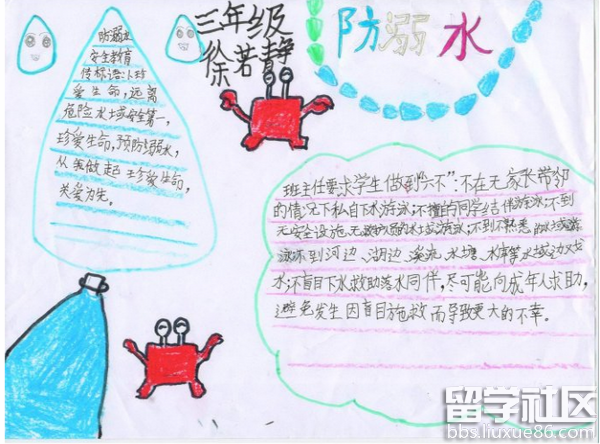 三年级
徐若静
防溺水
防溺水
安全教育
传标语:1、珍
爱生命,远离
危险水域安全第一,
珍爱生命,预防溺水,
从我做起 珍爱生命,
关爱为先。
班主任要求学生做到"六不":不在无家长带邻
的情况下私自下水游泳;不擅自同学结伴游泳;不到
无安全设施、无救护员的水域游泳;不到不熟悉的水域游
泳不到河边、湖边、溪流、水塘、水库等水域边戏
水;不盲目下水救助落水同伴,尽可能向成年人求助,
避免发生因盲目施救而导致更大的不幸。
留学社区
bbs.liuxue86.com